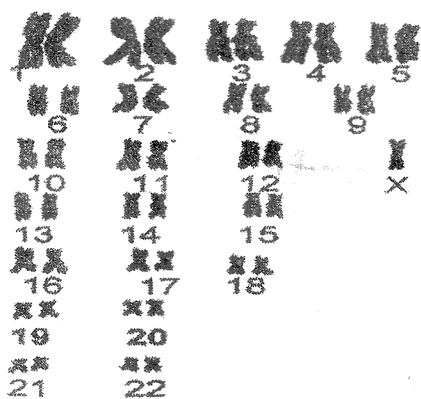 1 2 3 4 5
6 7 8 9
10 11 12 X
13 14 15
16 17 18
19 20
21 22